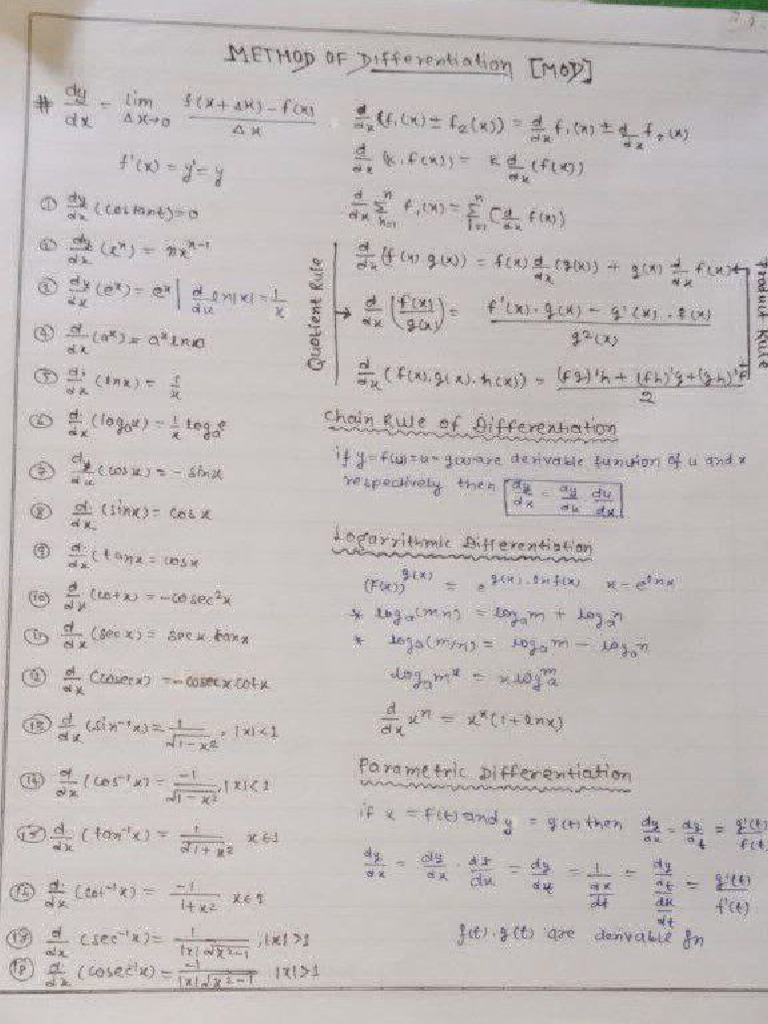 METHOD OF Differentiation [MOD]
# dy/dx = lim Δx→0 f(x+Δx)-f(x)/Δx
f'(x) = y' = y
① dy/dx (costant)=0
② dy/dx (x^n) = nx^n-1
③ dy/dx (e^x) = e^x | d/dx ln|x| = 1/x
④ d/dx (a^x) = a^x lna
⑤ d/dx (lnx) = 1/x
⑥ d/dx (log_a x) = 1/x log_a e
⑦ dy/dx (cosx) = -sinx
⑧ d/dx (sinx) = cosx
⑨ d/dx (tanx = cosx
⑩ d/dx (cotx) = -cosec²x
⑪ d/dx (secx) = secx.tanx
⑫ d/dx (cosecx) = -cosecx.cotx
⑬ d/dx (sin⁻¹x) = 1/√1-x², |x|<1
⑭ d/dx (cos⁻¹x) = -1/√1-x², |x|<1
⑮ d/dx (tan⁻¹x) = 1/√1+x²
⑯ d/dx (cot⁻¹x) = -1/1+x²
⑰ d/dx (sec⁻¹x) = 1/|x|√x²-1, |x|>1
⑱ d/dx (cosec⁻¹x) = -1/|x|√x²-1 |x|>1
d/dx (f₁(x) ± f₂(x)) = d/dx f₁(x) ± d/dx f₂(x)
d/dx (k.f(x)) = k d/dx (f(x))
d/dx Σ f₁(x) = Σ (d/dx f(x))
Quotient Rule
d/dx (f(x) g(x)) = f(x) d/dx (g(x)) + g(x) d/dx f(x)
d/dx (f(x)/g(x)) = f'(x).g(x) - g'(x).f(x)/g²(x)
d/dx (f(x).g(x).h(x)) = (fg)'h + (fh)'g + (gh)'f/2
Product Rule
Chain Rule of Differentiation
if y=f(u)=u=g(x) are derivable function of u and x
respectively then dy/dx = dy/du du/dx
Logarrithmic Differentiation
(F(x))^g(x) = e^g(x).lnf(x) x = e^lnx
* log_a(mn) = log_a m + log_a n
* log_a(m/n) = log_a m - log_a n
log_a m^x = x log_a m
d/dx x^x = x^x(1+lnx)
Parametric Differentiation
if x = f(t) and y = g(t) then dy/dx = dy/t = g'(t)/f(t)
dy/dx = dy/dx . dt/dx = dy/dt = 1/dx/dt = dy/dt/dx/dt = g'(t)/f'(t)
f(t).g(t) are derivable fn